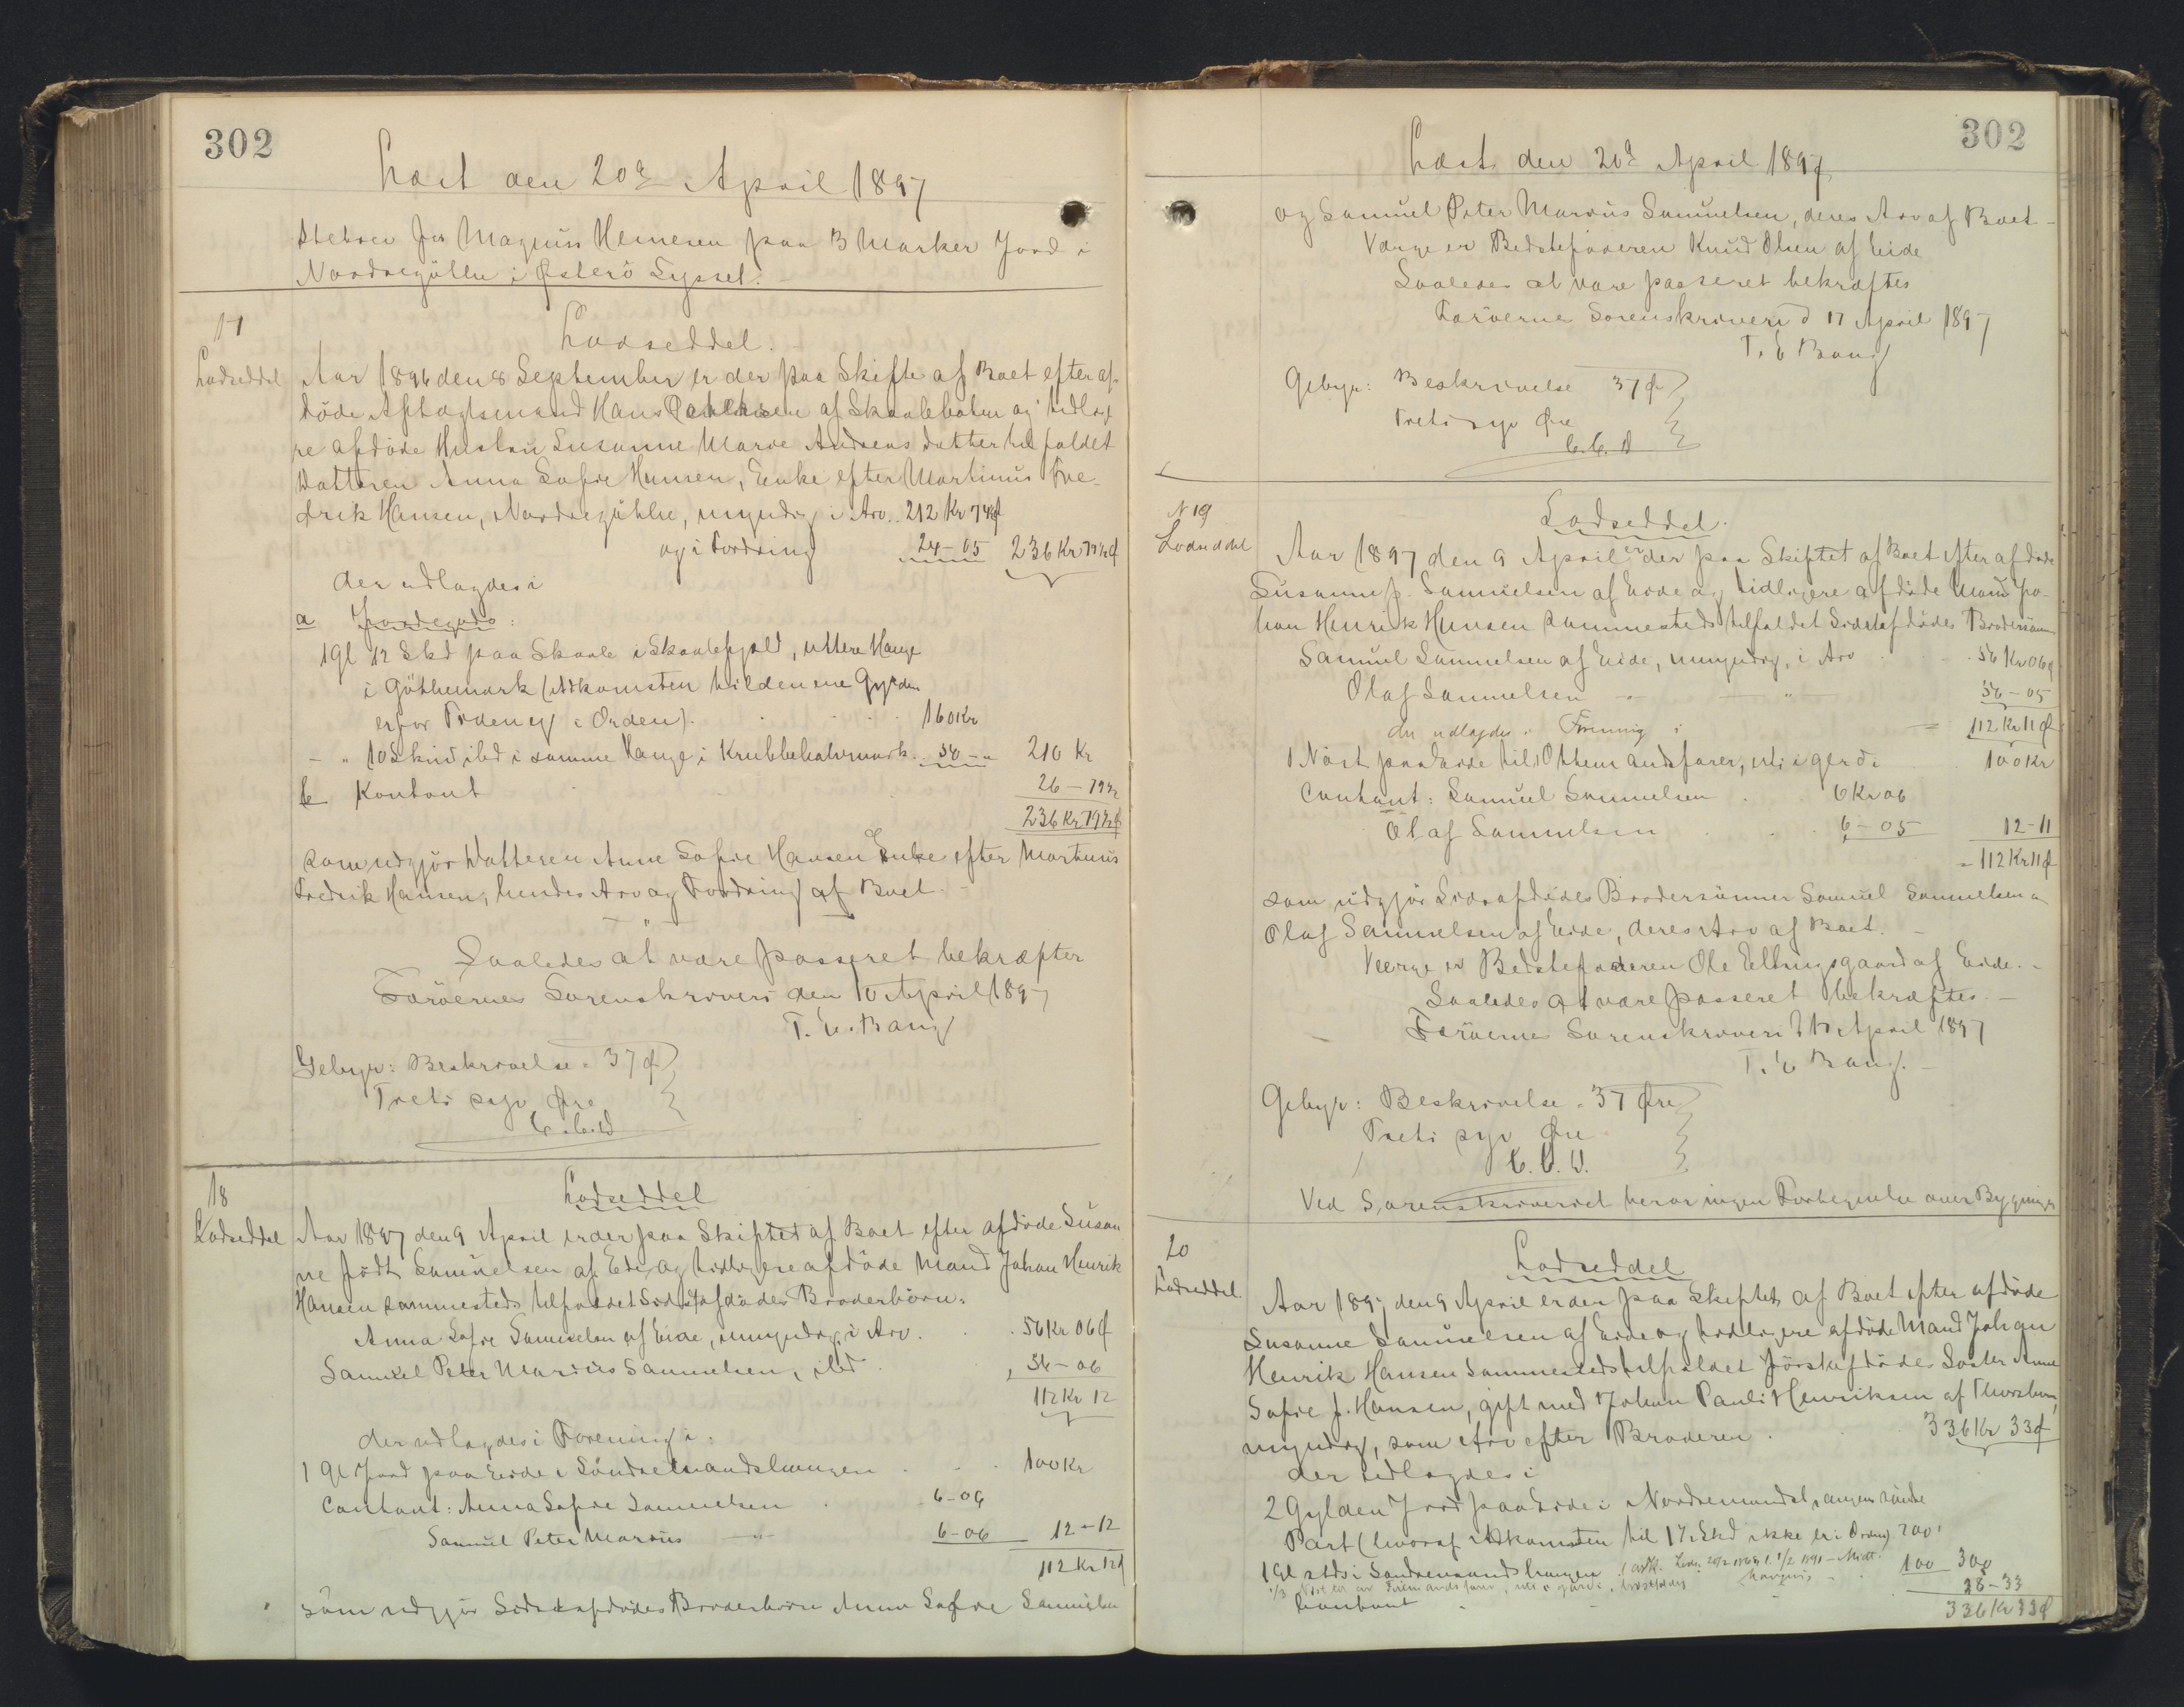 302
Læst den 20de April 1897
Stebrev for Magnus Heinesen paa 3 Marker Jord i
Nordregötte i Österö Syssel.
17
Lodseddel
Lodseddel.
Aar 1896 den 8 September er der paa Skifte af Boet efter af-
døde Aftægtsmand Hans af Skaalebotn og tidlige
re afdøde Hustru Susanne Marie Andreas datter tilfaldet
Datteren Anna Sofie Hansen, Enke efter Martinus Fre-
drik Hansen, Nordregøthe, myndig i Arv.. 212 Kr 74½ Ø
og i Fordring 24-05 236 Kr 79½ Ø
der udlagdes i
a Jordegods:
1 Gl 12 Skd paa Skaale i Skaalefjald, uttere Hauge
i Göthemark (Adkomsten til den ene Gylden
er for Tiden ej i Orden). 160 Kr
- " 10 Skind ibd i samme Hauge i 50 - " 210 Kr
b Kontant 26 - 79½
236 Kr 79½ Ø
som udgjör Datteren Anne Sofie Hansen Enke efter Martinus
Fredrik Hansen, hendes Arv og Fordring af Boet. -
- " -
Saaledes at være passeret bekræfter
Færöernes Sorenskriveri den 10 April 1897
T. E. Bang
Gebyr: Beskrivelse. 37 Ø
Treti syv Øre
18
Lodseddel
Lodseddel
Aar 1897 den 9 April er der paa Skiftet af Boet efter afdöde Susan
ne födt Samuelsen af Eide og tidligere afdöde Mand Johan Henrik
Hansen sammesteds tilfaldet Sidstafdödes Broderbörn:
Anna Sofie Samuelsen af Eide, umyndig, i Arv. 56 Kr 06 Ø
Samuel Peter Marius Samuelsen, ibd. 56 - 06
112 Kr 12
der udlagdes i Forening i:
1 Gl Jord paa Eide i 100 Kr
Contant: Anna Sofie Samuelsen 6-06
Samuel Peter Marius -"- 6-06 12-12
112 Kr 12 Ø
som udgjör Sidstafdödes Broderbörn Anna Sofie Samuelsen
302
Læst den 20de April 1897
og Samuel Peter Marius Samuelsen, deres Arv af Boet -
Værge er Bedstefaderen Knud Olsen af Eide
Saaledes at være passeret bekræftes
Færöerne Sorenskriveri d 17 April 1897
T. E Bang
Gebyr: Beskrivelse 37 Ø
Treti syv Øre
N 19
Lodseddel
Lodseddel.
Aar 1897 den 9 April er der paa Skiftet af Boet efter afdöde
Susanne f. Samuelsen af Eide og tidligere afdöde Mand Jo-
han Henrik Hansen sammesteds tilfaldet Sidstafdödes Brodersönner
Samuel Samuelsen af Eide, umyndig, i Arv 56 Kr 06 Ø
Olaf Samuelsen - " - 56 - 05
der udlagdes i Forening i 112 Kr 11 Ø
1 Nöst paa Eide til 100 Kr
Contant: Samuel Samuelsen 6 Kr 06
Olaf Samuelsen 6 - 05 12-11
112 Kr 11 Ø
som udgjör Sidstafdödes Brodersönner Samuel Samuelsen og
Olaf Samuelsen af Eide, deres Arv af Boet. -
Værge er Bedstefaderen Ole Ellingsgaard af Eide. -
Saaledes at være passeret bekræftes. -
Færöernes Sorenskriveri d April 1897
T. E Bang. -
Gebyr: Beskrivelse. 37 Øre
Treti syv Øre
Ved Sorenskriveriet beror ingen over Bygninger
20
Lodseddel
Lodseddel
Aar 1897 den 9 April er der paa Skiftet af Boet efter afdöde
Susanne Samuelsen af Eide og tidligere afdöde Mand Johan
Henrik Hansen sammesteds tilfaldet Förstafdödes Söster Anne
Sofie f. Hansen, gift med Johan Pauli Henriksen af
myndig, som Arv efter Broderen. 336 Kr 33 Ø
der udlagdes i
2 Gylden Jord paa Eide i
Part (hvoraf Adkomsten til 17½ Skd ikke er i Orden) 200
1 Gl stds i 100 300
Contant 28-33
336 Kr 33 Ø